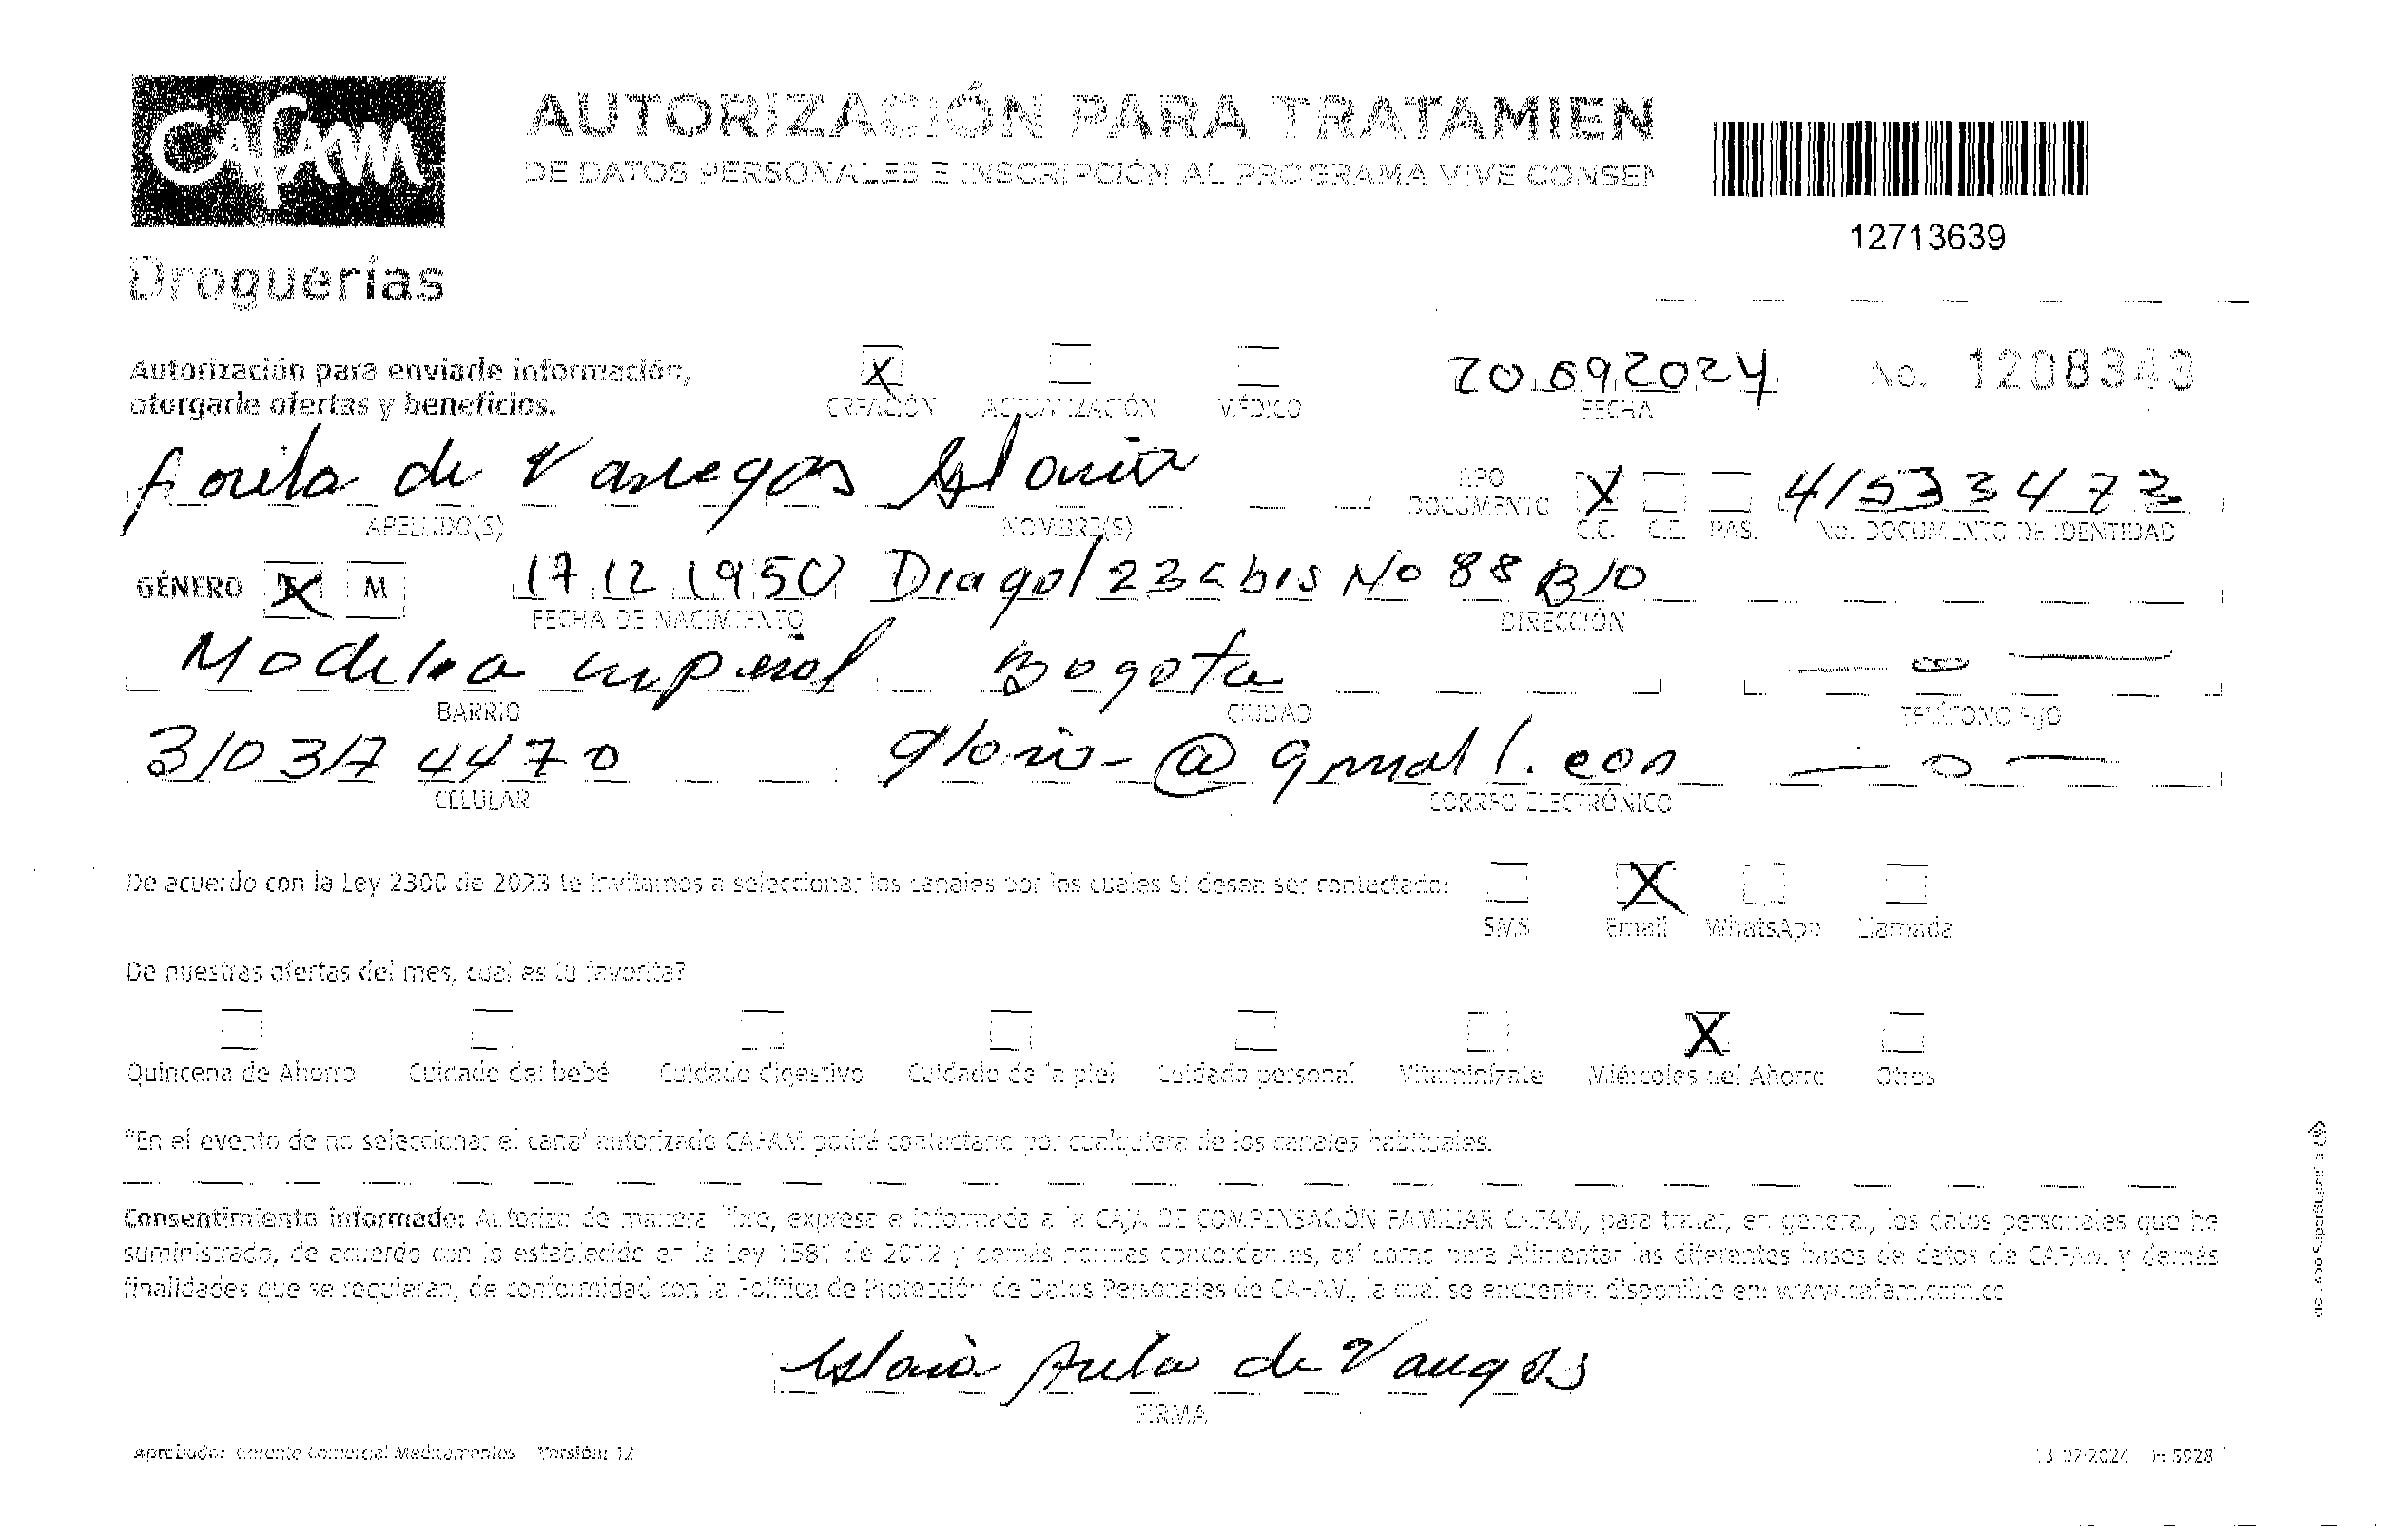 Cafam
Droguerías
AUTORIZACIÓN PARA TRATAMIEN
DE DATOS PERSONALES E INSCRIPCIÓN AL PROGRAMA VIVE CONSEN
12713639
Autorización para enviarle información,
otorgarle ofertas y beneficios.
X
CREACIÓN ACTUALIZACIÓN MÉDICO
20 09 2024
FECHA
No. 1208343
de Vanegas Gloria
APELLIDO(S) NOMBRE(S)
TIPO
DOCUMENTO
X
C.C. C.E. PAS.
41533473
No. DOCUMENTO DE IDENTIDAD
GÉNERO X M
17 12 1950
FECHA DE NACIMIENTO
Diagol 23 c bis No 88 B 10
DIRECCIÓN
Modelia imperial
BARRIO
Bogota
CIUDAD
TELÉFONO FIJO
3103174470
CELULAR
gloria-@gmail.con
CORREO ELECTRÓNICO
De acuerdo con la Ley 2300 de 2023 te invitamos a seleccionar los canales por los cuales SI desea ser contactado:
X
SMS Email WhatsApp Llamada
De nuestras ofertas del mes, cual es tu favorita?
X
Quincena de Ahorro Cuidado del bebé Cuidado digestivo Cuidado de la piel Cuidado personal Vitaminízate Miércoles del Ahorro Otros
*En el evento de no seleccionar el canal autorizado CAFAM podrá contactarlo por cualquiera de los canales habituales.
Consentimiento informado: Autorizo de manera libre, expresa e informada a la CAJA DE COMPENSACIÓN FAMILIAR CAFAM, para tratar, en general, los datos personales que he
suministrado, de acuerdo con lo establecido en la Ley 1581 de 2012 y demás normas concordantes, así como para Alimentar las diferentes bases de datos de CAFAM y demás
finalidades que se requieran, de conformidad con la Política de Protección de Datos Personales de CAFAM, la cual se encuentra disponible en: www.cafam.com.co
Gloria de Vanegas
FIRMA
Aprobado: Gerente Comercial Medicamentos Versión: 12
13-02-2024 H-5928